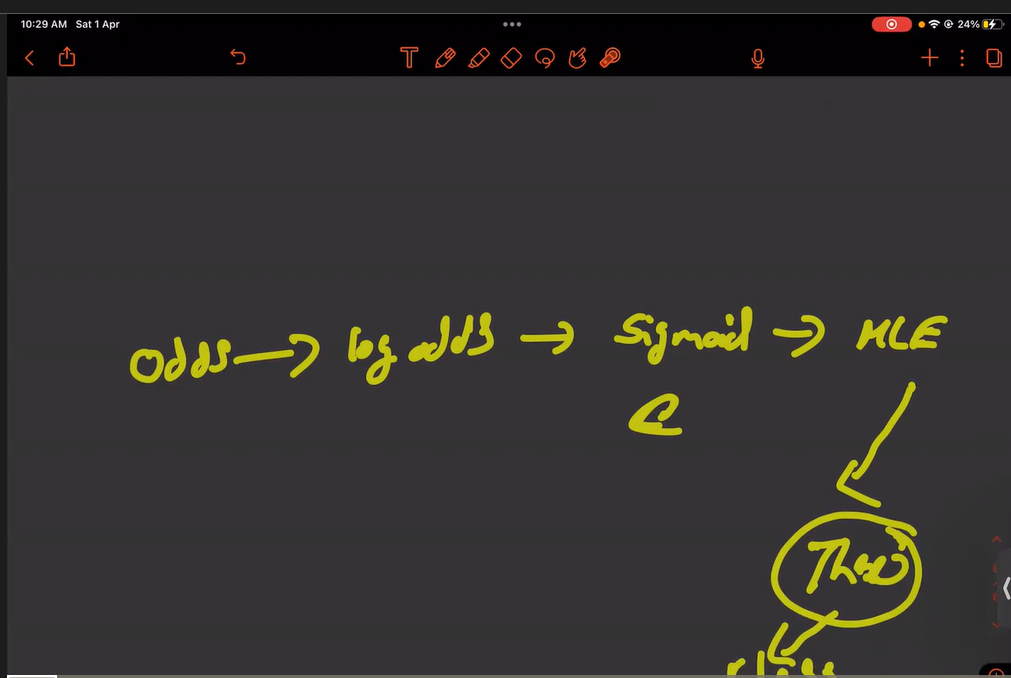 10:29 AM Sat 1 Apr
24%
Odds → log odds → Sigmoid → MLE